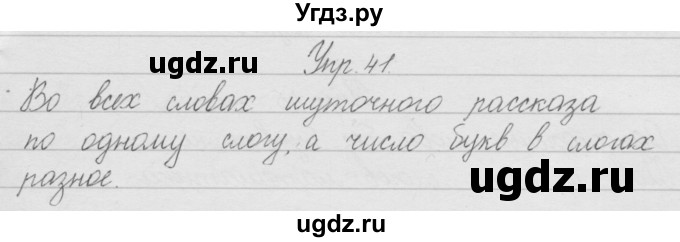 Угдз.ру
ugdz.ru
Упр. 41.
Во всех словах шуточного рассказа
по одному слогу, а число букв в слогах
разное.
ugdz.ru
ugdz.ru
ugdz.ru